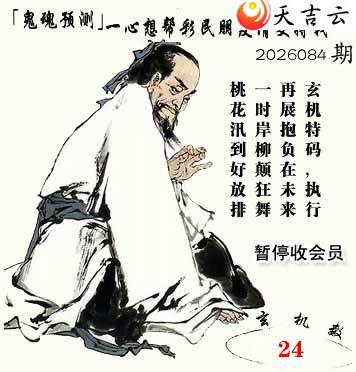 天吉云
「鬼魂预测」一心想帮彩民朋友
2026084期
玄机特码，执行
再展抱负在未来
一时岸柳颠狂舞
桃花汛到好放排
暂停收会员
玄机
24